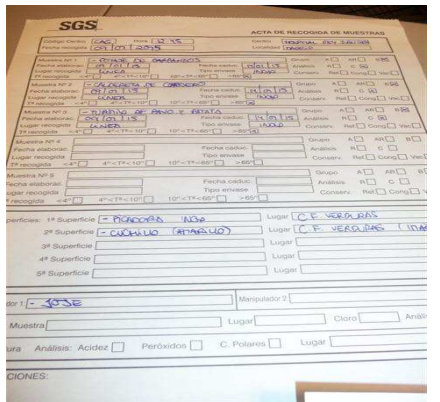 SGS
ACTA DE RECOGIDA DE MUESTRAS
Código Centro CAG Hora 12:45 Centro HOSPITAL
Fecha recogida 09/01/2015 Localidad
Muestra Nº 1 - POTAJE DE GARBANZOS Grupo A AR B
Fecha elaborac. 09/01/15 Fecha caduc. Análisis R C
Lugar recogida LINEA Tipo envase INDIV Conserv. Ref. Cong. Vac.
Tª recogida <4° 4°<Tª<10° 10°<Tª<65° >65°
Muestra Nº 2 - CALDERETA DE CORDERO Grupo A AR B
Fecha elaborac. 09/01/15 Fecha caduc. 14/01/15 Análisis R C
Lugar recogida LINEA Tipo envase INDIV Conserv. Ref. Cong. Vac.
Tª recogida <4° 4°<Tª<10° 10°<Tª<65° >65°
Muestra Nº 3 - TURBITO DE PAVO Y PATATA Grupo A AR B
Fecha elaborac. 09/01/15 Fecha caduc. 14/01/15 Análisis R C
Lugar recogida LINEA Tipo envase INDIV Conserv. Ref. Cong. Vac.
Tª recogida <4° 4°<Tª<10° 10°<Tª<65° >65°
Muestra Nº 4 Grupo A AR B
Fecha elaborac. Fecha caduc. Análisis R C
Lugar recogida Tipo envase Conserv. Ref. Cong. Vac.
Tª recogida <4° 4°<Tª<10° 10°<Tª<65° >65°
Muestra Nº 5 Grupo A AR B
Fecha elaborac. Fecha caduc. Análisis R C
Lugar recogida Tipo envase Conserv. Ref. Cong. V
recogida <4° 4°<Tª<10° 10°<Tª<65° >65°
perficies: 1ª Superficie - PICADORA Lugar C.F. VERDURAS
2ª Superficie - CUCHILLO (AMARILLO) Lugar C.F. VERDURAS
3ª Superficie Lugar
4ª Superficie Lugar
5ª Superficie Lugar
dor 1 - JOSE Manipulador 2
Muestra Lugar Cloro Anális
ura Análisis: Acidez Peróxidos C. Polares Lugar
CIONES: